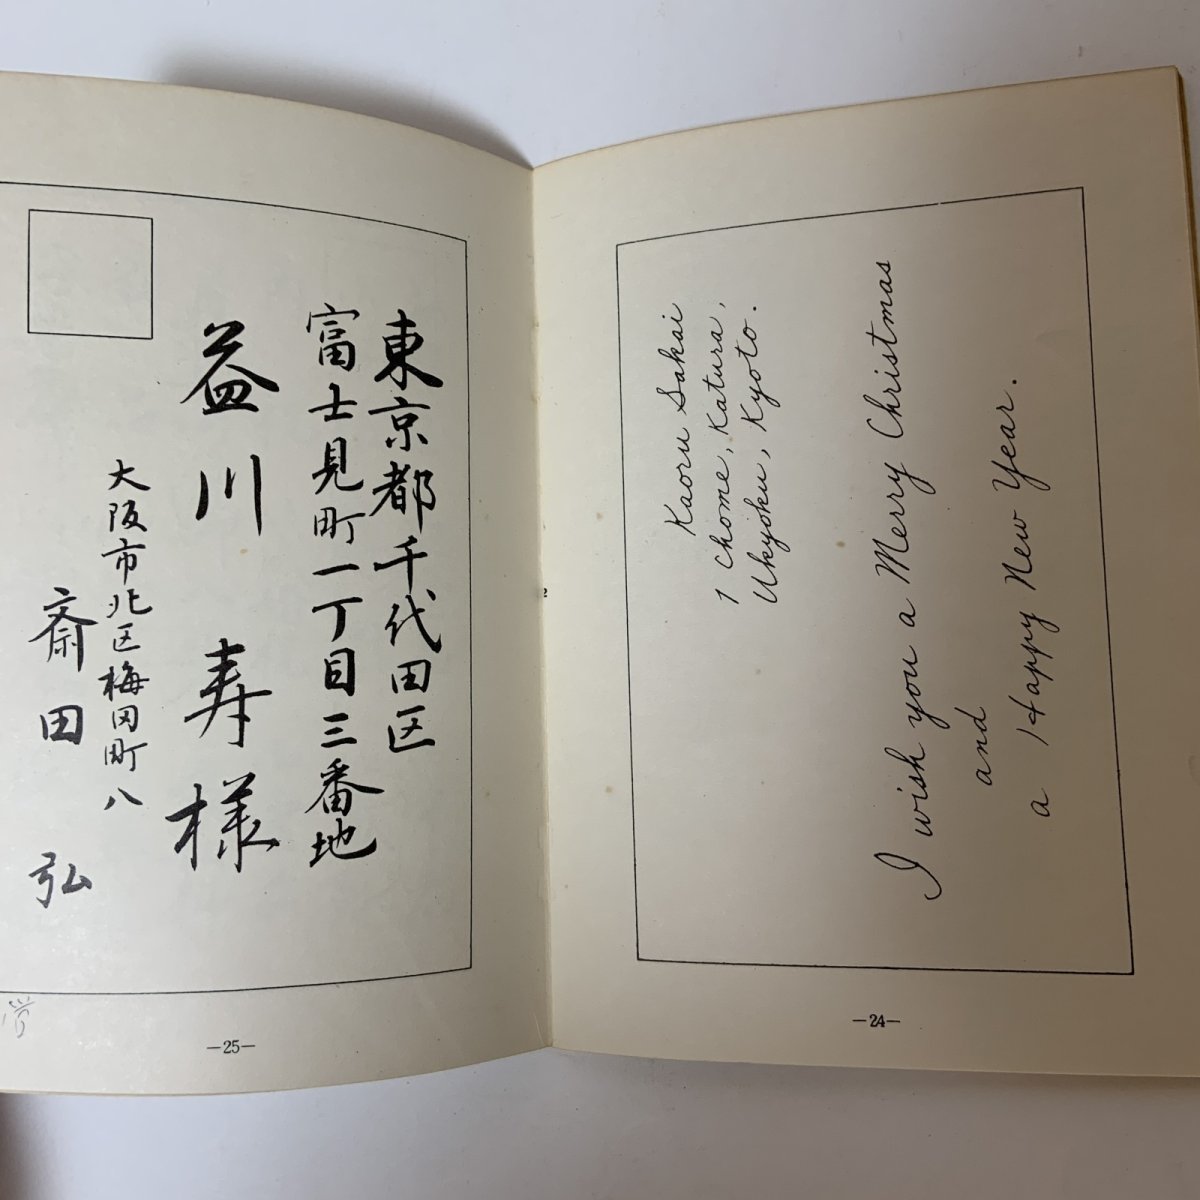 東京都千代田区
富士見町一丁目三番地
益川寿様
大阪市北区梅田町八
斎田弘
—25—
I wish you a Merry Christmas
and
a Happy New Year.
Kaoru Sakai
1 Chome, Katura,
Ukyoku, Kyoto.
—24—